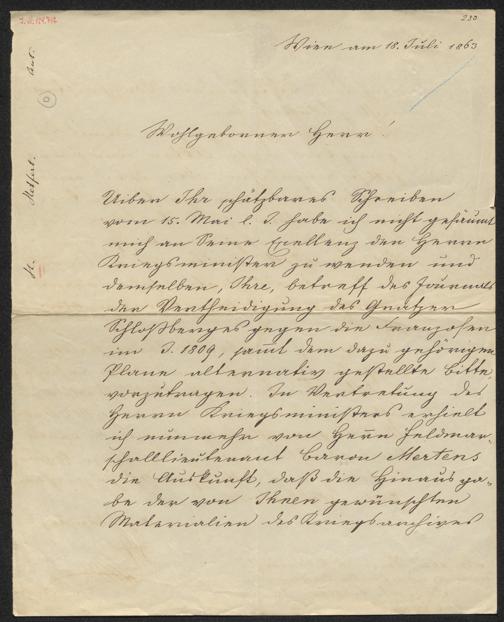 230
Wien am 18. Juli 1863
Wohlgeborner Herr!
Uiben Ihr schätzbares Schreiben
vom 15. Mai l. J. habe ich nicht gesäumt
mich an Seine Excellenz den Herrn
Kriegsminister zu wenden und
demselben, Ihre, betreff des Journals
der Vertheidigung des Gratzer
Schloßberges gegen die Franzosen
im J. 1809, sammt dem dazu gehörigen
Plane alternativ gestellte Bitte
vorzutragen. In Vertretung des
Herrn Kriegsministers erhielt
ich nunmehr von Herrn Feldmar-
schalllieutenant Baron Mertens
die Auskunft, daß die Hinausga-
be der von Ihnen gewünschten
Materialien des Kriegsarchives
Helfert.
Aut.